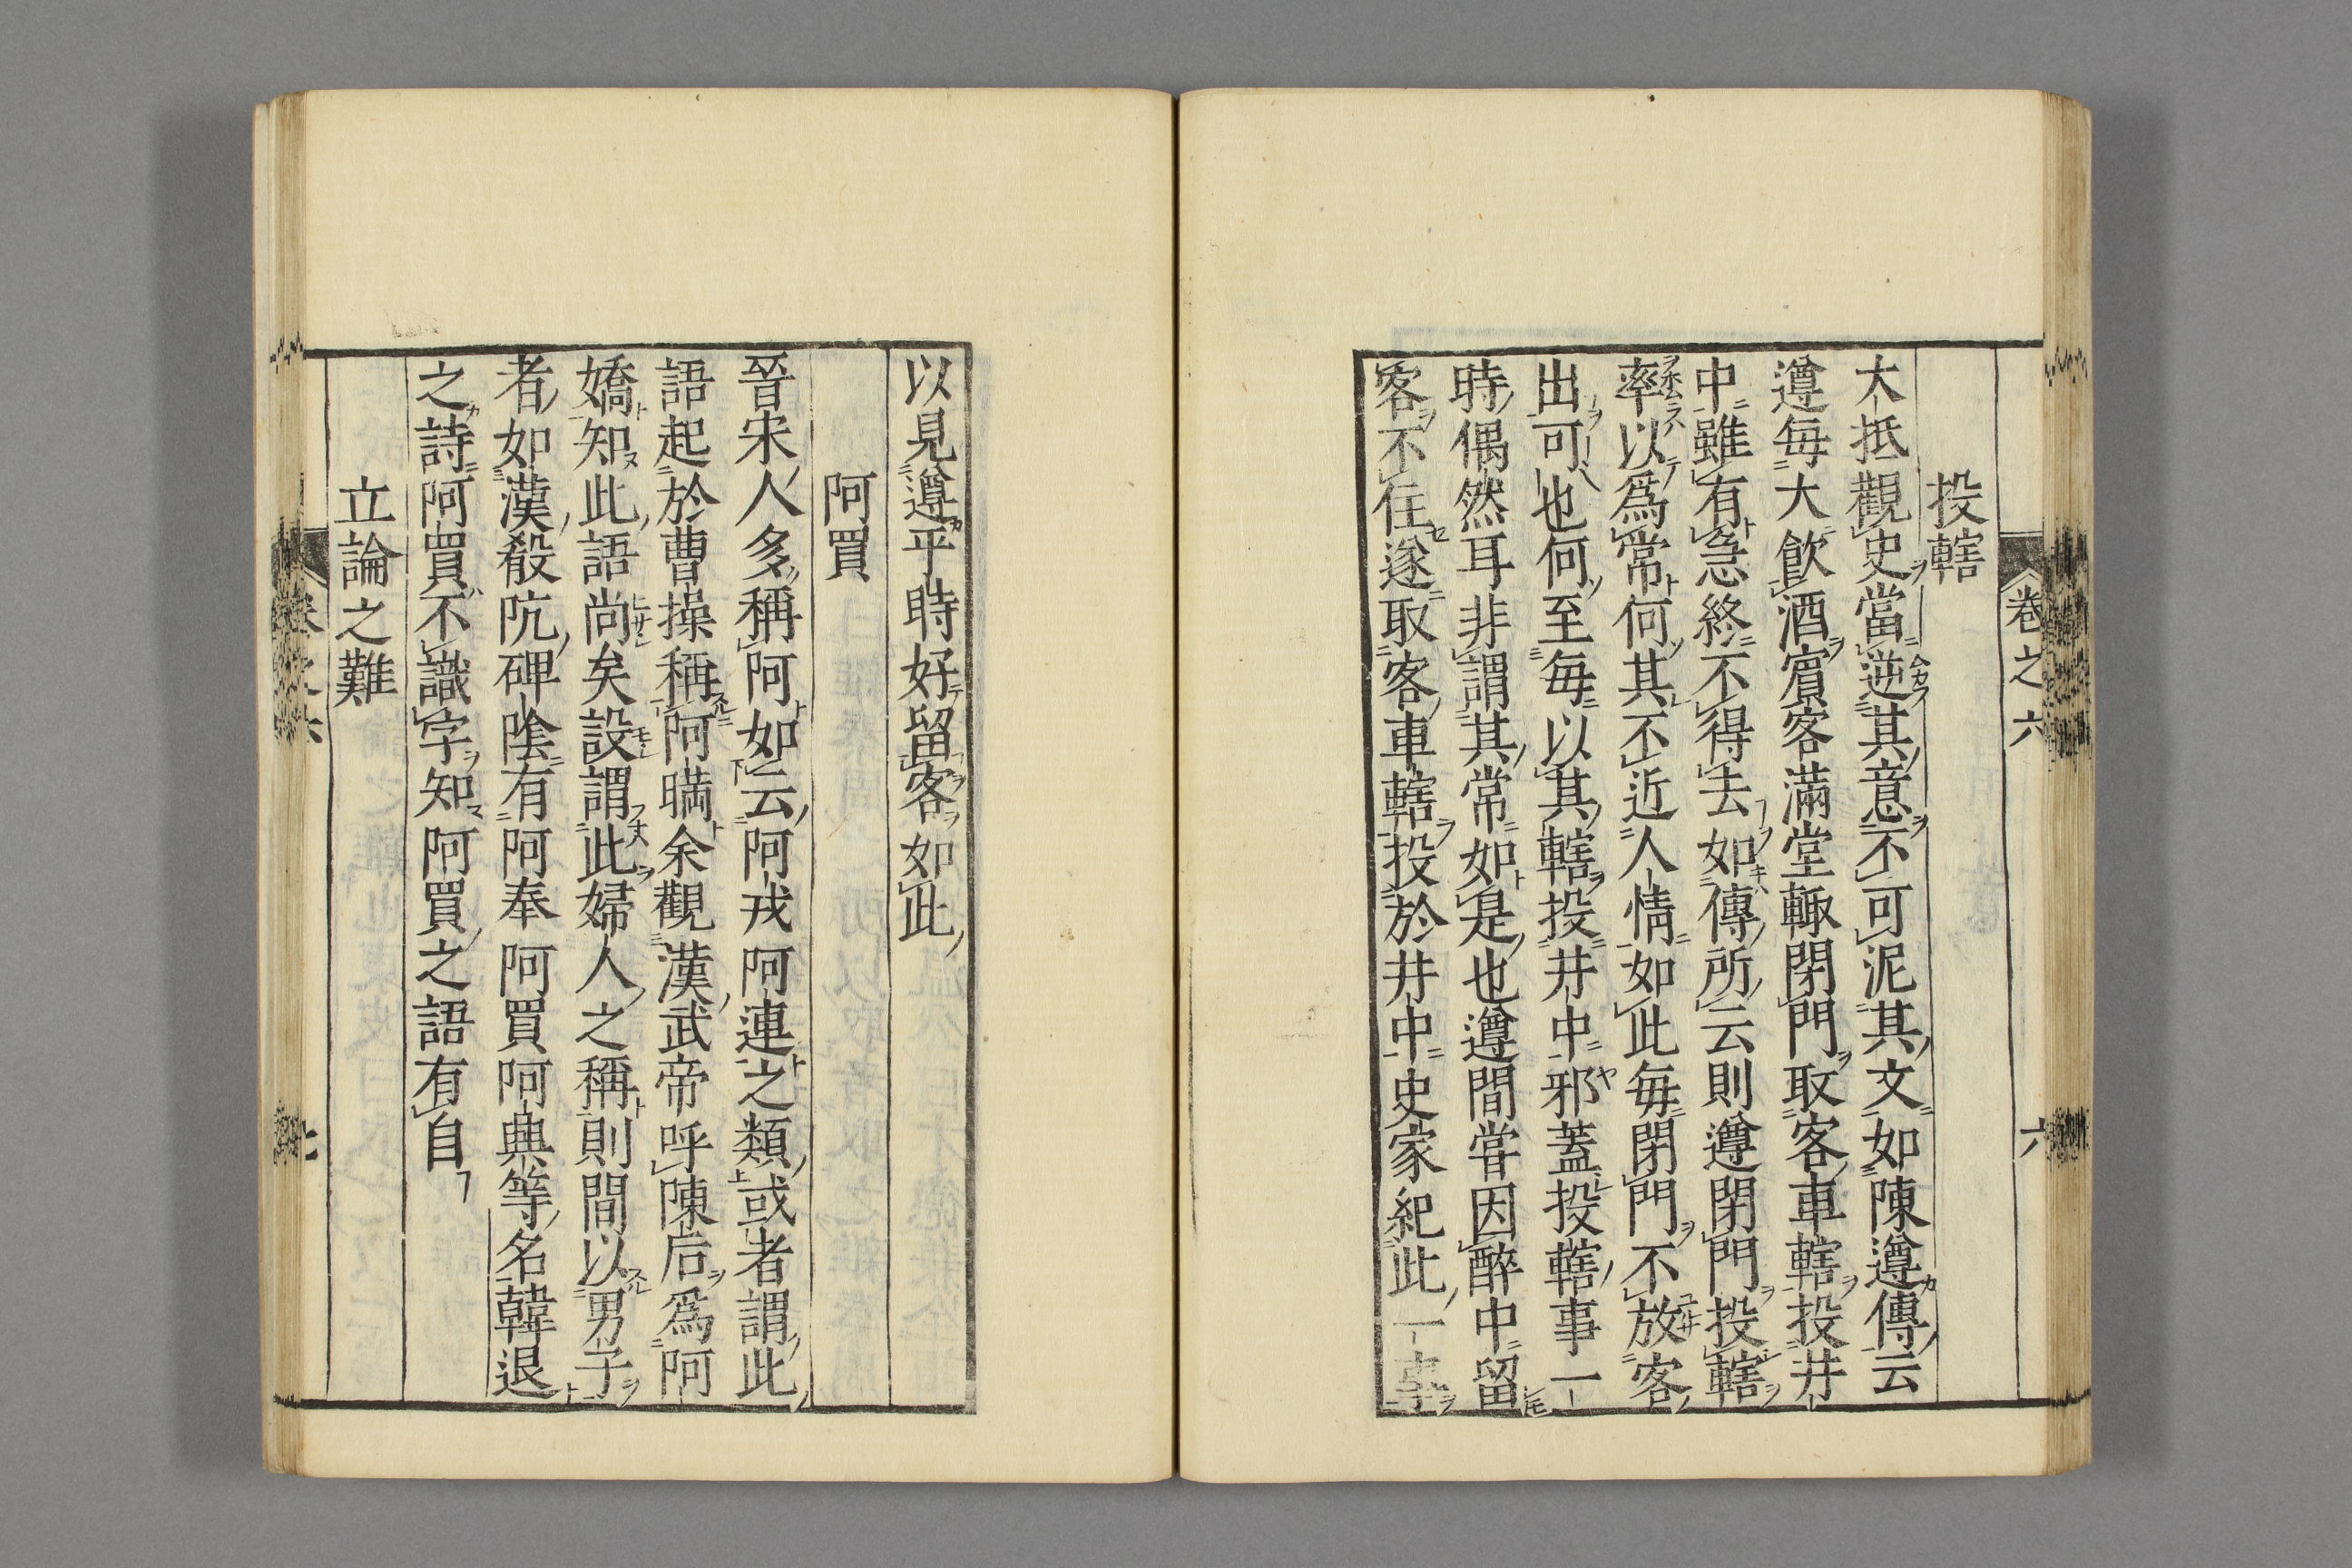 卷之六
六
投轄
大抵觀史當逆其意不可泥其文如陳遵傳云
遵毎大飮酒賓客滿堂輙閉門取客車轄投井
中雖有急終不得去如傳所云則遵閉門投轄
率以爲常何其不近人情如此毎閉門不放客
出可也何至毎以其轄投井中邪蓋投轄事一
時偶然耳非謂其常如是也遵間嘗因醉中留
客不住遂取客車轄投於井中史家紀此一事
以見遵平時好留客如此
阿買
晉宋人多稱阿如云阿戎阿連之類或者謂此
語起於曹操稱阿瞞余觀漢武帝呼陳后爲阿
嬌知此語尚矣設謂此婦人之稱則間以男子
者如漢殽阬碑陰有阿奉阿買阿典等名韓退
之詩阿買不識字知阿買之語有自
立論之難